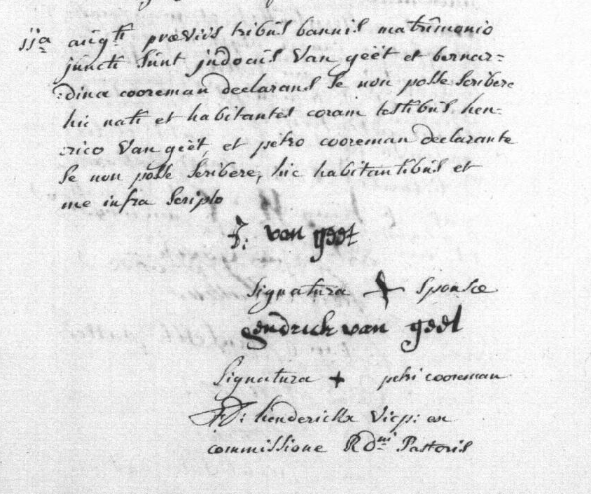 jja augti prœviis tribus bannis matrimonio
juncti sunt judocus van geêt et bernar=
=dina cooreman declarans se non posse scribere
hic nati et habitantes coram testibus hen-
-rico van geêt, et petro cooreman declarante
se non posse scribere, hic habitantibus et
me infra scripto
J: van geet
Signatura + Sponsœ
gendrick van geet
Signatura + petri cooreman
F: D: hendericks Vicp: ex
commissione Rdmi Pastoris